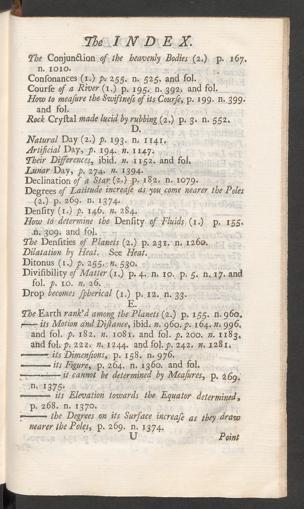 The INDEX.
The Conjunction of the heavenly Bodies (2.) p. 167.
n. 1010.
Consonances (1.) p. 255. n. 525. and fol.
Course of a River (1.) p. 195. n. 392. and fol.
How to measure the Swiftness of its Course, p. 199. n. 399.
and fol.
Rock Crystal made lucid by rubbing (2.) p. 3. n. 552.
D.
Natural Day (2.) p. 193. n. 1141.
Artificial Day, p. 194. n. 1147.
Their Differences, ibid. n. 1152. and fol.
Lunar Day, p. 274. n. 1394.
Declination of a Star (2.) p. 182. n. 1079.
Degrees of Latitude increase as you come nearer the Poles
(2.) p. 269. n. 1374.
Density (1.) p. 146. n. 284.
How to determine the Density of Fluids (1.) p. 155.
n. 309. and fol.
The Densities of Planets (2.) p. 231. n. 1260.
Dilatation by Heat. See Heat.
Ditonus (1.) p. 255. n. 530.
Divisibility of Matter (1.) p. 4. n. 10. p. 5. n. 17. and
fol. p. 10. n. 26.
Drop becomes spherical (1.) p. 12. n. 33.
E.
The Earth rank'd among the Planets (2.) p. 155. n. 960.
—— its Motion and Distance, ibid. n. 960. p. 164. n. 996.
and fol. p. 182. n. 1081. and fol. p. 200. n. 1183.
and fol. p. 222. n. 1244. and fol. p. 242. n. 1281.
—— its Dimensions, p. 158. n. 976.
—— its Figure, p. 264. n. 1360. and fol.
—— it cannot be determined by Measures, p. 269.
n. 1375.
—— its Elevation towards the Equator determined,
p. 268. n. 1370.
—— the Degrees on its Surface increase as they draw
nearer the Poles, p. 269. n. 1374.
U Point